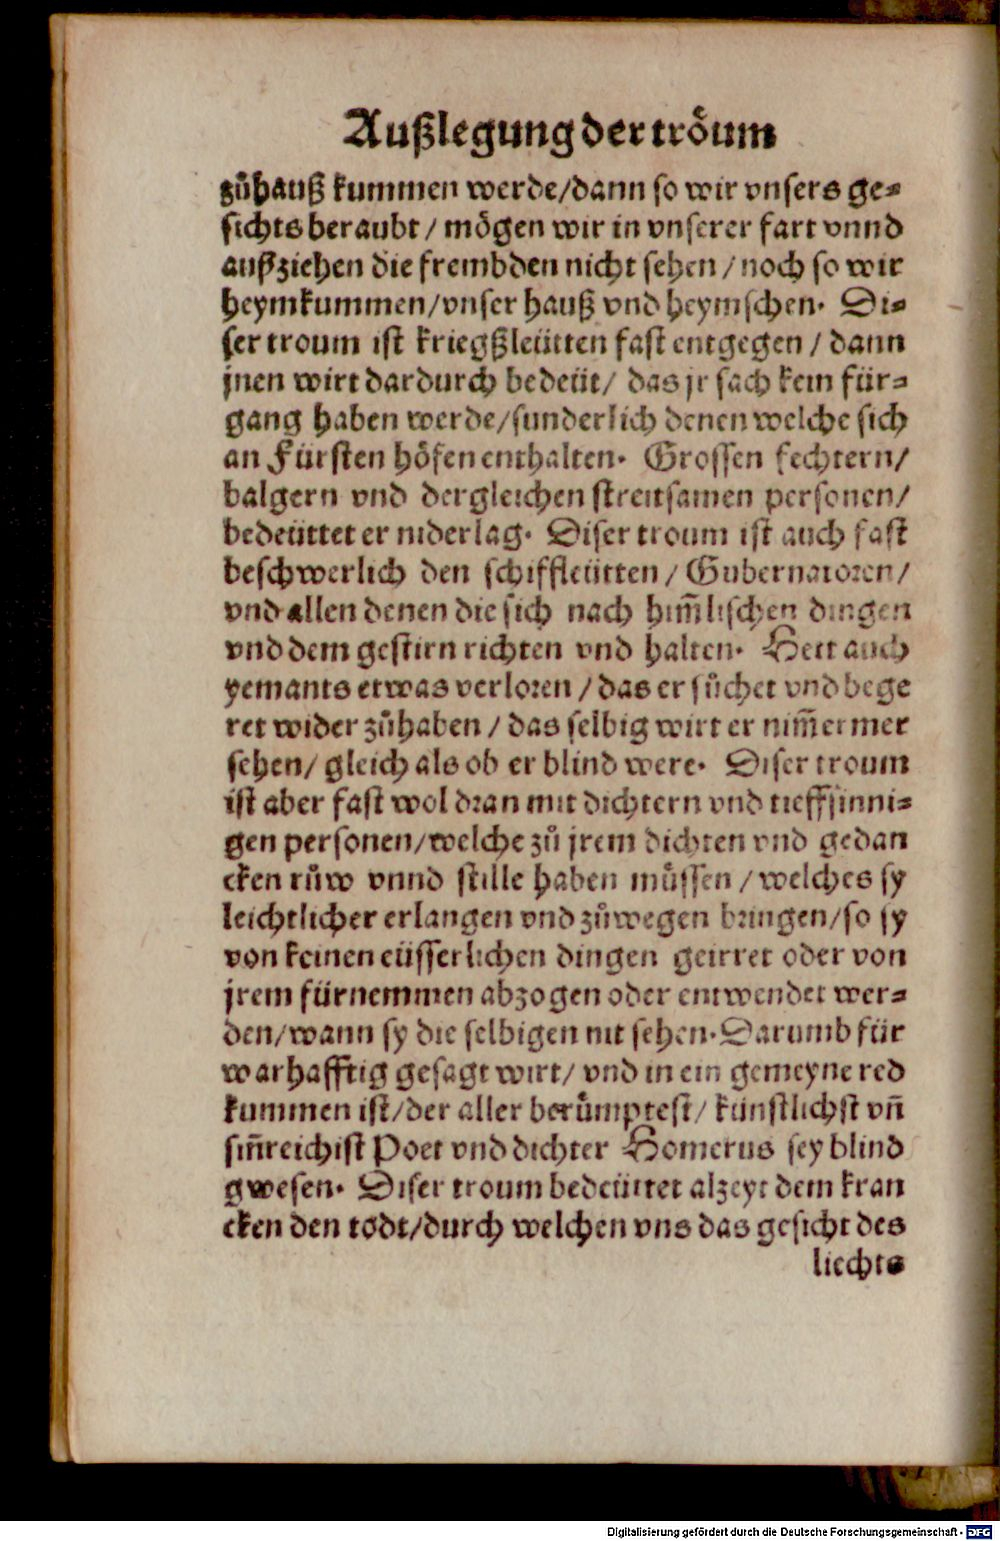 Außlegung der troͤum
zuͦhauß kummen werde/dann so wir vnsers ge⸗
sichts beraubt / moͤgen wir in vnserer fart vnnd
außziehen die frembden nicht sehen / noch so wir
heymkummen/vnser hauß vnd heym sehen. Di⸗
ser troum ist kriegßleütten fast entgegen / dann
jnen wirt dardurch bedeüt/ das jr sach kein für⸗
gang haben werde/sunderlich denen welche sich
an Fürsten hoͤfen enthalten. Grossen fechtern/
balgern vnd dergleichen streitsamen personen/
bedeüttet er niderlag. Diser troum ist auch fast
beschwerlich den schiffleütten / Gubernatoren/
vnd allen denen die sich nach him̃lischen dingen
vnd dem gestirn richten vnd halten. Hett auch
yemants etwas verloren / das er suͦchet vnd bege
ret wider zuͦhaben / das selbig wirt er nim̃ermer
sehen/ gleich als ob er blind were. Diser troum
ist aber fast wol dran mit dichtern vnd tieffsinni⸗
gen personen/welche zuͦ jrem dichten vnd gedan
cken ruͦw vnnd stille haben muͤssen / welches sy
leichtlicher erlangen vnd zuͦwegen bringen/so sy
von keinen eüsserlichen dingen geirret oder von
jrem fürnemmen abzogen oder entwendet wer⸗
den/wann sy die selbigen nit sehen. Darumb für
warhafftig gesagt wirt/ vnd in ein gemeyne red
kummen ist/der aller beruͤmptest/ künstlichst vñ
sin̄reichist Poet vnd dichter Homerus sey blind
gwesen. Diser troum bedeüttet alzeyt dem kran
cken den todt/durch welchen vns das gesicht des
liechts
Digitalisierung gefördert durch die Deutsche Forschungsgemeinschaft - DFG